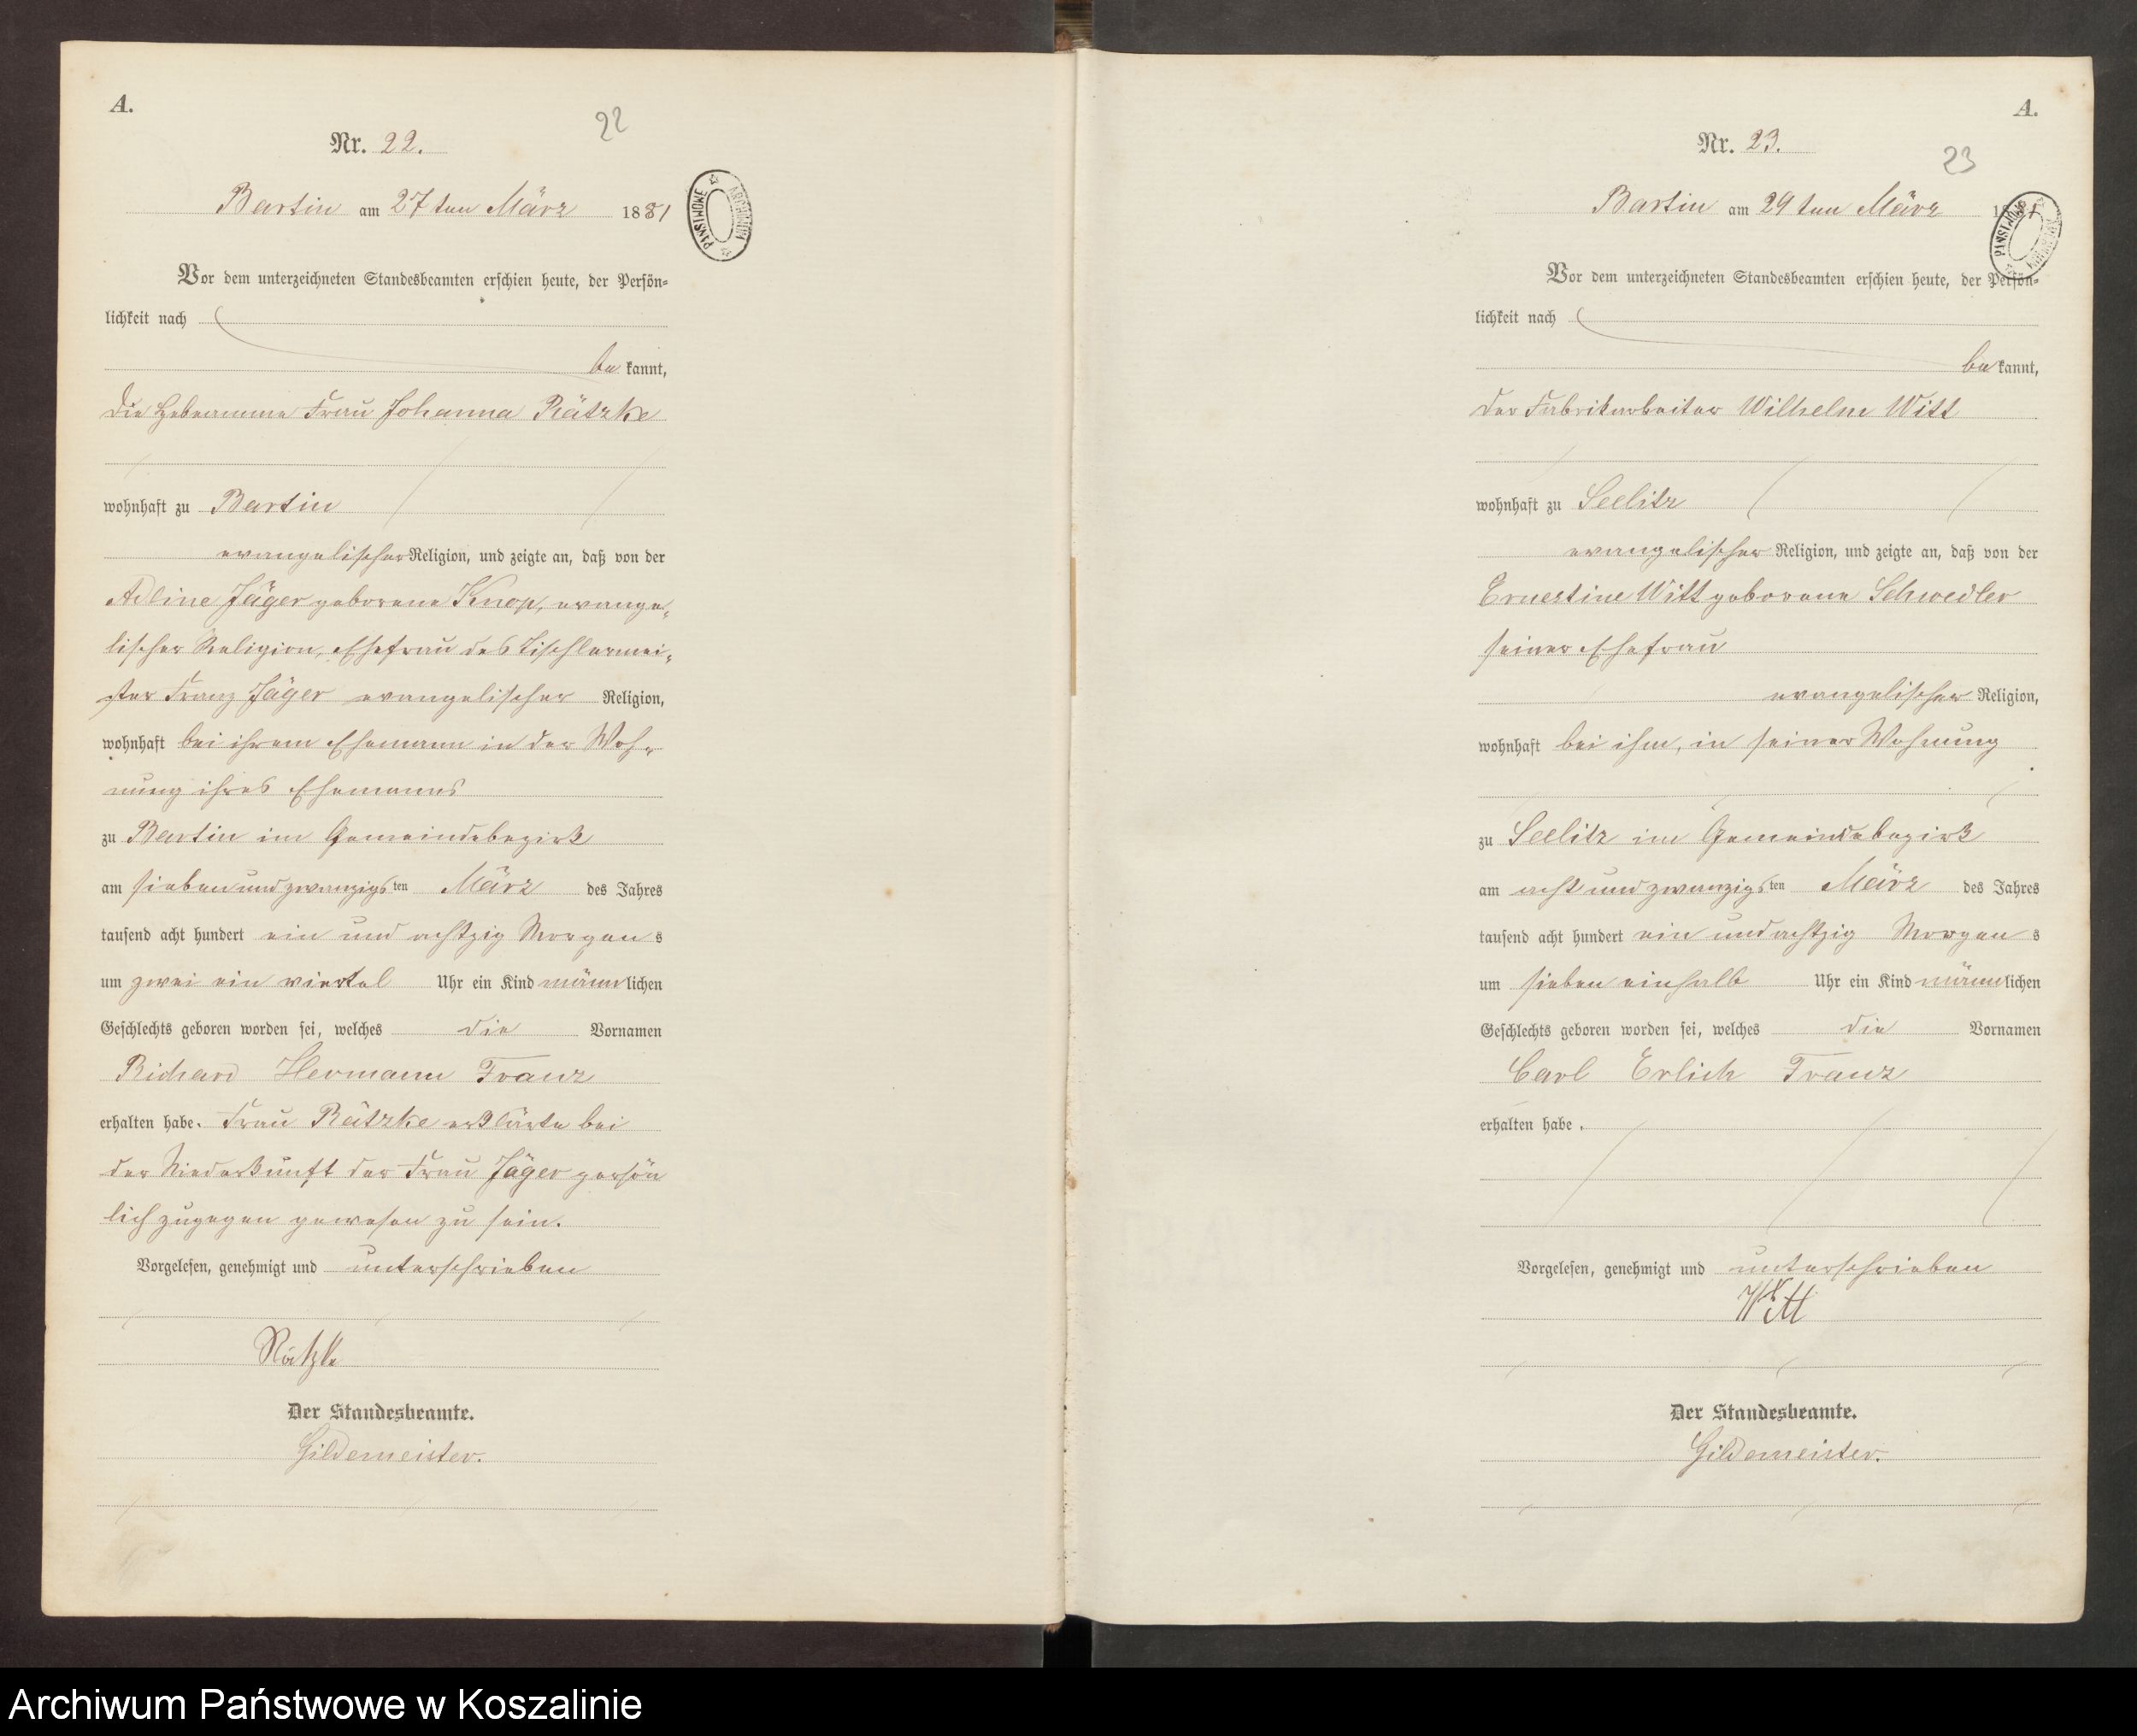 A.
Nr. 22.
22
Bartin am 27ten März 1881
PAŃSTWOWE ARCHIWUM
Vor dem unterzeichneten Standesbeamten erschien heute, der Persön=
lichkeit nach
be kannt,
die Hebeamme Frau Johanna Rätzke
wohnhaft zu Bartin
evangelischer Religion, und zeigte an, daß von der
Adline Jäger geborene Knop, evange„
lischer Religion, Ehefrau des Tischlermei„
ster Franz Jäger evangelischer Religion,
wohnhaft bei ihrem Ehemann in der Woh„
nung ihres Ehemanns
zu Bartin im Gemeindebezirk
am siebenundzwanzigsten März des Jahres
tausend acht hundert ein und achtzig Morgens
um zwei ein viertel Uhr ein Kind männlichen
Geschlechts geboren worden sei, welches die Vornamen
Richard Hermann Franz
erhalten habe. Frau Rätzke erklärte bei
der Niederkunft der Frau Jäger persön
lich zugegen gewesen zu sein.
Vorgelesen, genehmigt und unterschrieben
Rätzke
Der Standesbeamte.
Gildemeister.
A.
Nr. 23.
23
Bartin am 29ten März 1881
PAŃSTWOWE ARCHIWUM
Vor dem unterzeichneten Standesbeamten erschien heute, der Persön=
lichkeit nach
be kannt,
der Fabrikarbeiter Wilhelm Witt
wohnhaft zu Seelitz
evangelischer Religion, und zeigte an, daß von der
Ernestine Witt geborene Schwedler
seiner Ehefrau
evangelischer Religion,
wohnhaft bei ihm, in seiner Wohnung
zu Seelitz im Gemeindebezirk
am acht und zwanzigsten März des Jahres
tausend acht hundert ein und achtzig Morgens
um sieben einhalb Uhr ein Kind männlichen
Geschlechts geboren worden sei, welches die Vornamen
Carl Erlich Franz
erhalten habe.
Vorgelesen, genehmigt und unterschrieben
Witt
Der Standesbeamte.
Gildemeister.
Archiwum Państwowe w Koszalinie